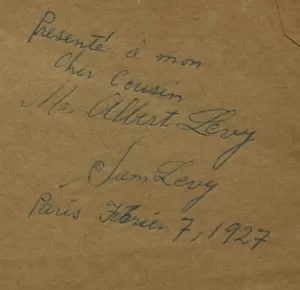 Présenté à mon
Cher Cousin
Mr. Albert Levy
Sam Levy
Paris Février 7, 1927